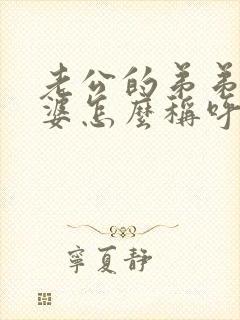 老公的弟弟
婆怎麼稱呼
寧夏靜